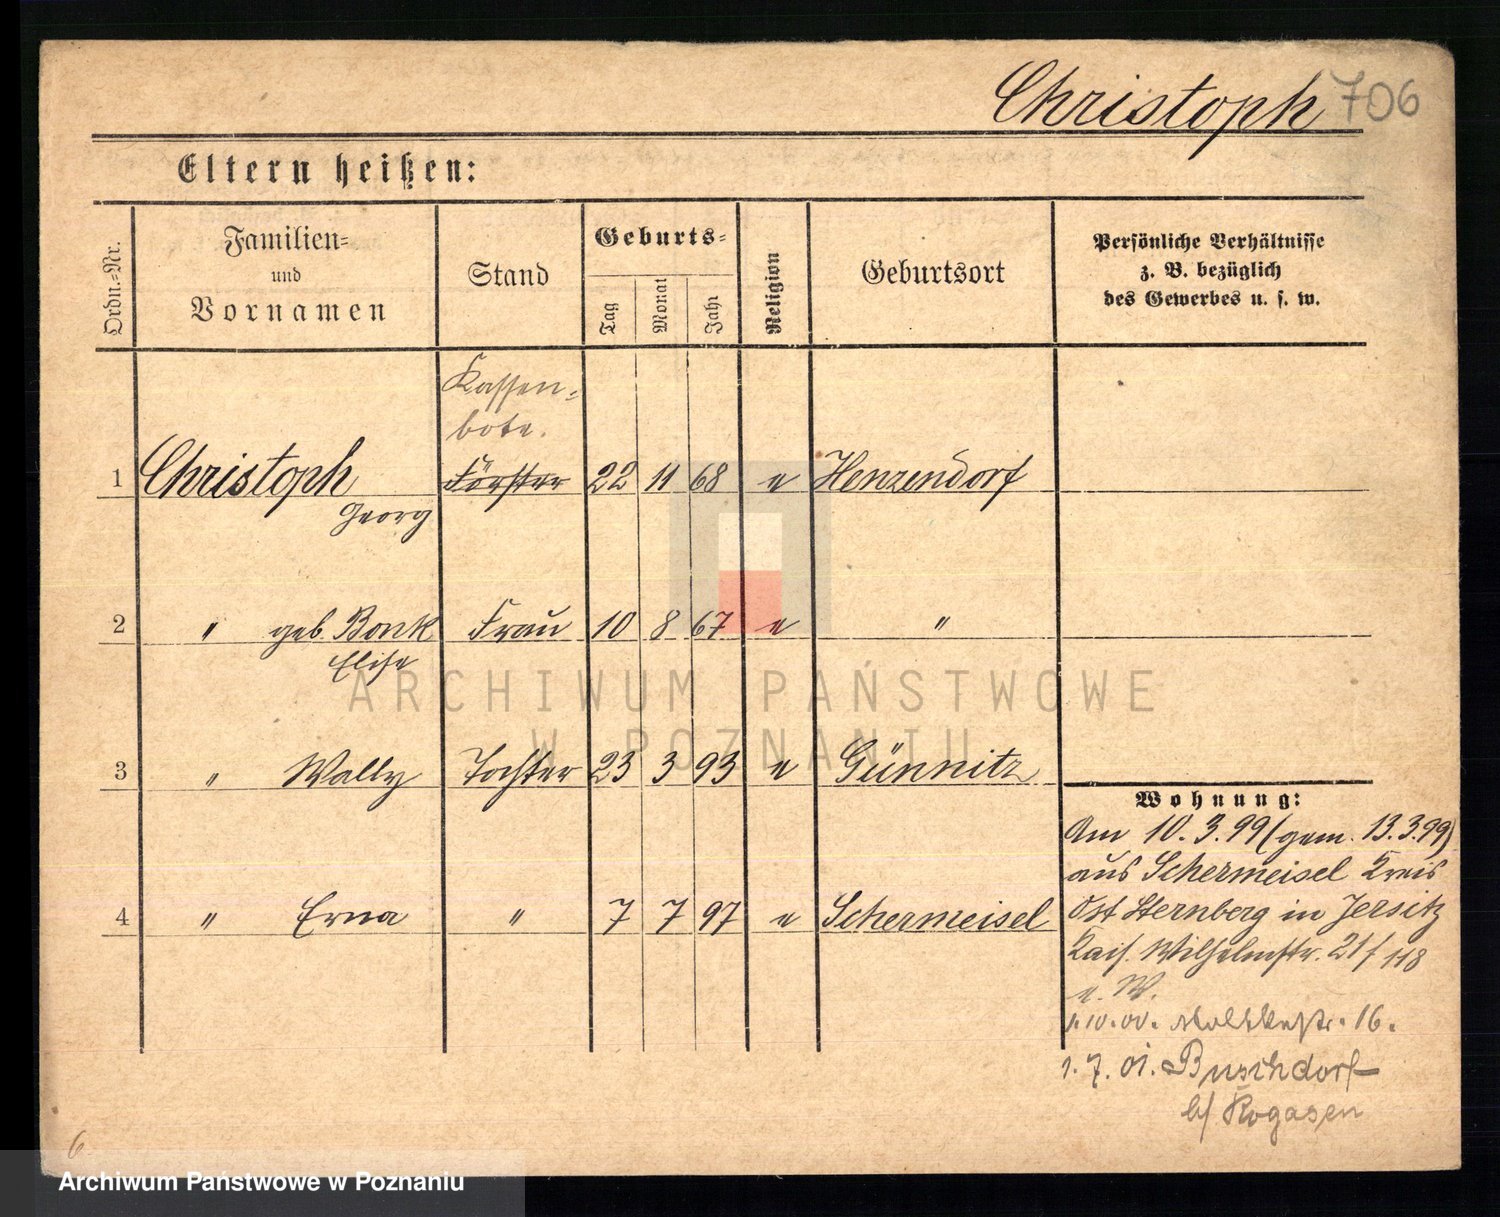 Christoph 706
Eltern heißen:
Ordn.=Nr.
Familien=
und
Vornamen
Stand
Geburts=
Tag
Monat
Jahr
Religion
Geburtsort
Persönliche Verhältnisse
z. B. bezüglich
des Gewerbes u. s. w.
Kassen=
bote.
1 Christoph Förster 22 11 68 e Henzendorf
Georg
2 " geb. Bonk Frau 10 8 67 e "
Elise
3 " Wally Tochter 23 3 93 e Günnitz
4 " Erna " 7 7 97 e Schermeisel
Wohnung:
Am 10.3.99 (gem. 13.3.99)
aus Schermeisel Kreis
Ost Sternberg in Jersitz
Kais. Wilhelmstr. 21/ 118
e. W.
1.10.00. Moltkestr. 16.
1.7.01. Buschdorf
b/ Rogasen
6
ARCHIWUM PAŃSTWOWE
W POZNANIU
Archiwum Państwowe w Poznaniu